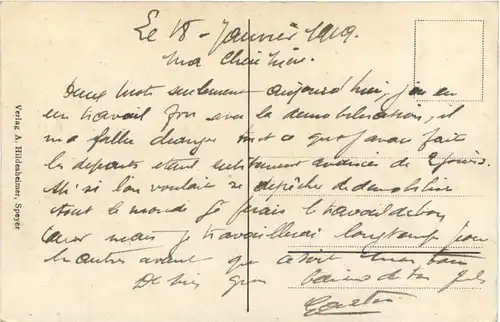 Le 18 - Janvier 1919.
Ma Chère Mère.
Deux mots seulement aujourd'hui, j'ai eu
un travail fou avec la démobilisation, il
m'a fallu changer tout ce que j'avais fait
les départs étant subitement avancés de jours.
Ah! si l'on voulait se dépêcher de démobiliser
tout le monde je ferais le travail de bon
cœur mais je travaillerai longtemps pour
les autres avant que ce soit mon tour
baisers de ton fils
Gaston
Verlag A. Hildenheimer, Speyer